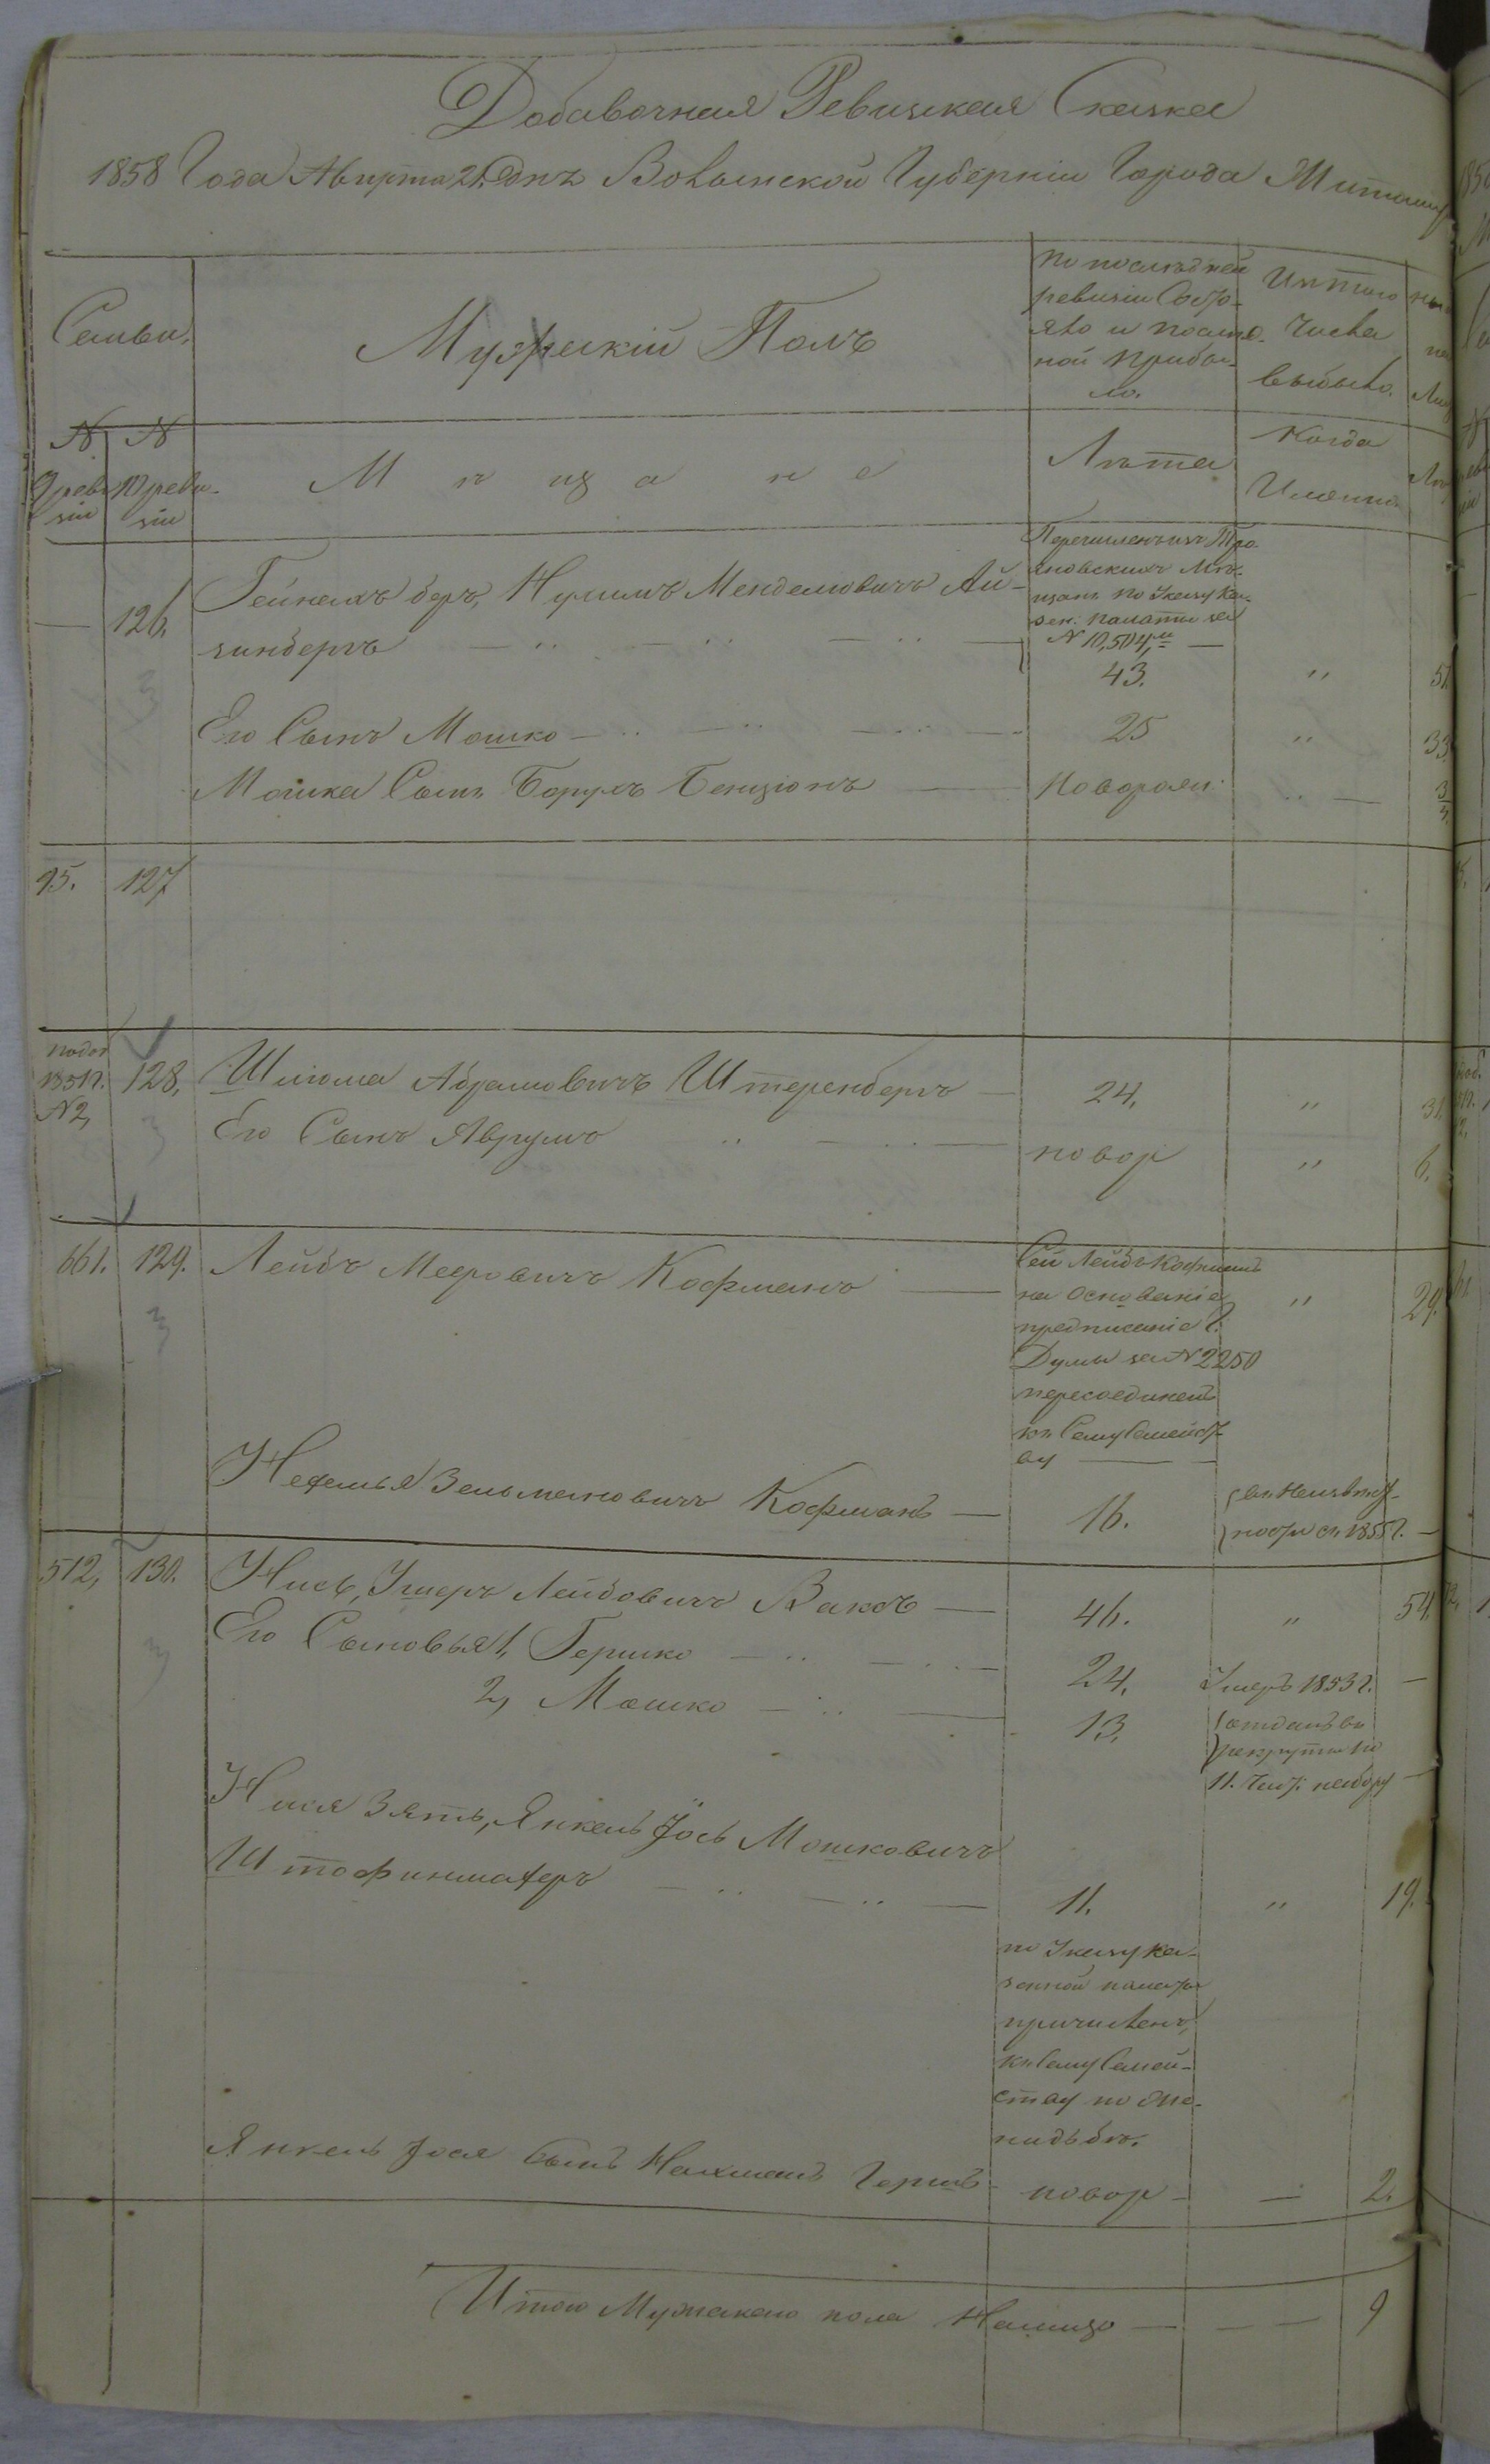 Добавочная Ревизкая Сказка
1858 Года Августа 21. дня Волынской Губерніи Города Житоми
Семьи.
Мужескій Полъ
По послѣдней
ревизіи Состо-
яло и послѣ
ной прибы-
ло.
Изъ того
Числа
выбыло.
N
9 реви
зіи
N
10 реви-
зіи
Мѣщане
Лѣта
Когда
Именно.
— 126.
Гейнехъ беръ, Нухимъ Менделевичъ Ай-
зинбергъ
Перечисленъ изъ Тро-
яновскихъ Мѣ-
щанъ по Указу Ка-
зен: палаты за
N 10,504,м
43. " 51.
Его Сынъ Мошко 25 " 33
Мошка Сынъ Борухъ Бенціонъ Новорож: 3
95. 127
подоп
1851 г.
N 2,
128, Шлиома Абрамовичъ Штеренбергъ 24, " 31.
Его Сынъ Аврумъ новор " 6.
661. 129. Лейбъ Мееровичъ Кофманъ
Сей Лейбъ Кофманъ
на основаніе
предписаніе Г.
Думы за N 2250
пересоединенъ
къ Сему Семейст-
ву
" 29.
Нехемья Зельмановичъ Кофманъ 16.
въ неизвѣст-
ности съ 1855 г. —
512, 130. Нисъ, Ушеръ Лейбовичъ Ваксъ 46. " 54.
Его Сыновья 1, Гершко 24, Умеръ 1853 г. —
2, Мошко 13,
отданъ въ
рекруты по
11. Част: набору —
Нися Зять, Янкель Іось Мошковичъ
Штофинмахеръ 11. " 19.
по Указу Ка-
зенной палаты
причисленъ,
къ Сему Семей-
ству по
Янкель Іося Сынъ Нахманъ Гершъ новор — 2.
Итого Мужескаго пола Налицо 9